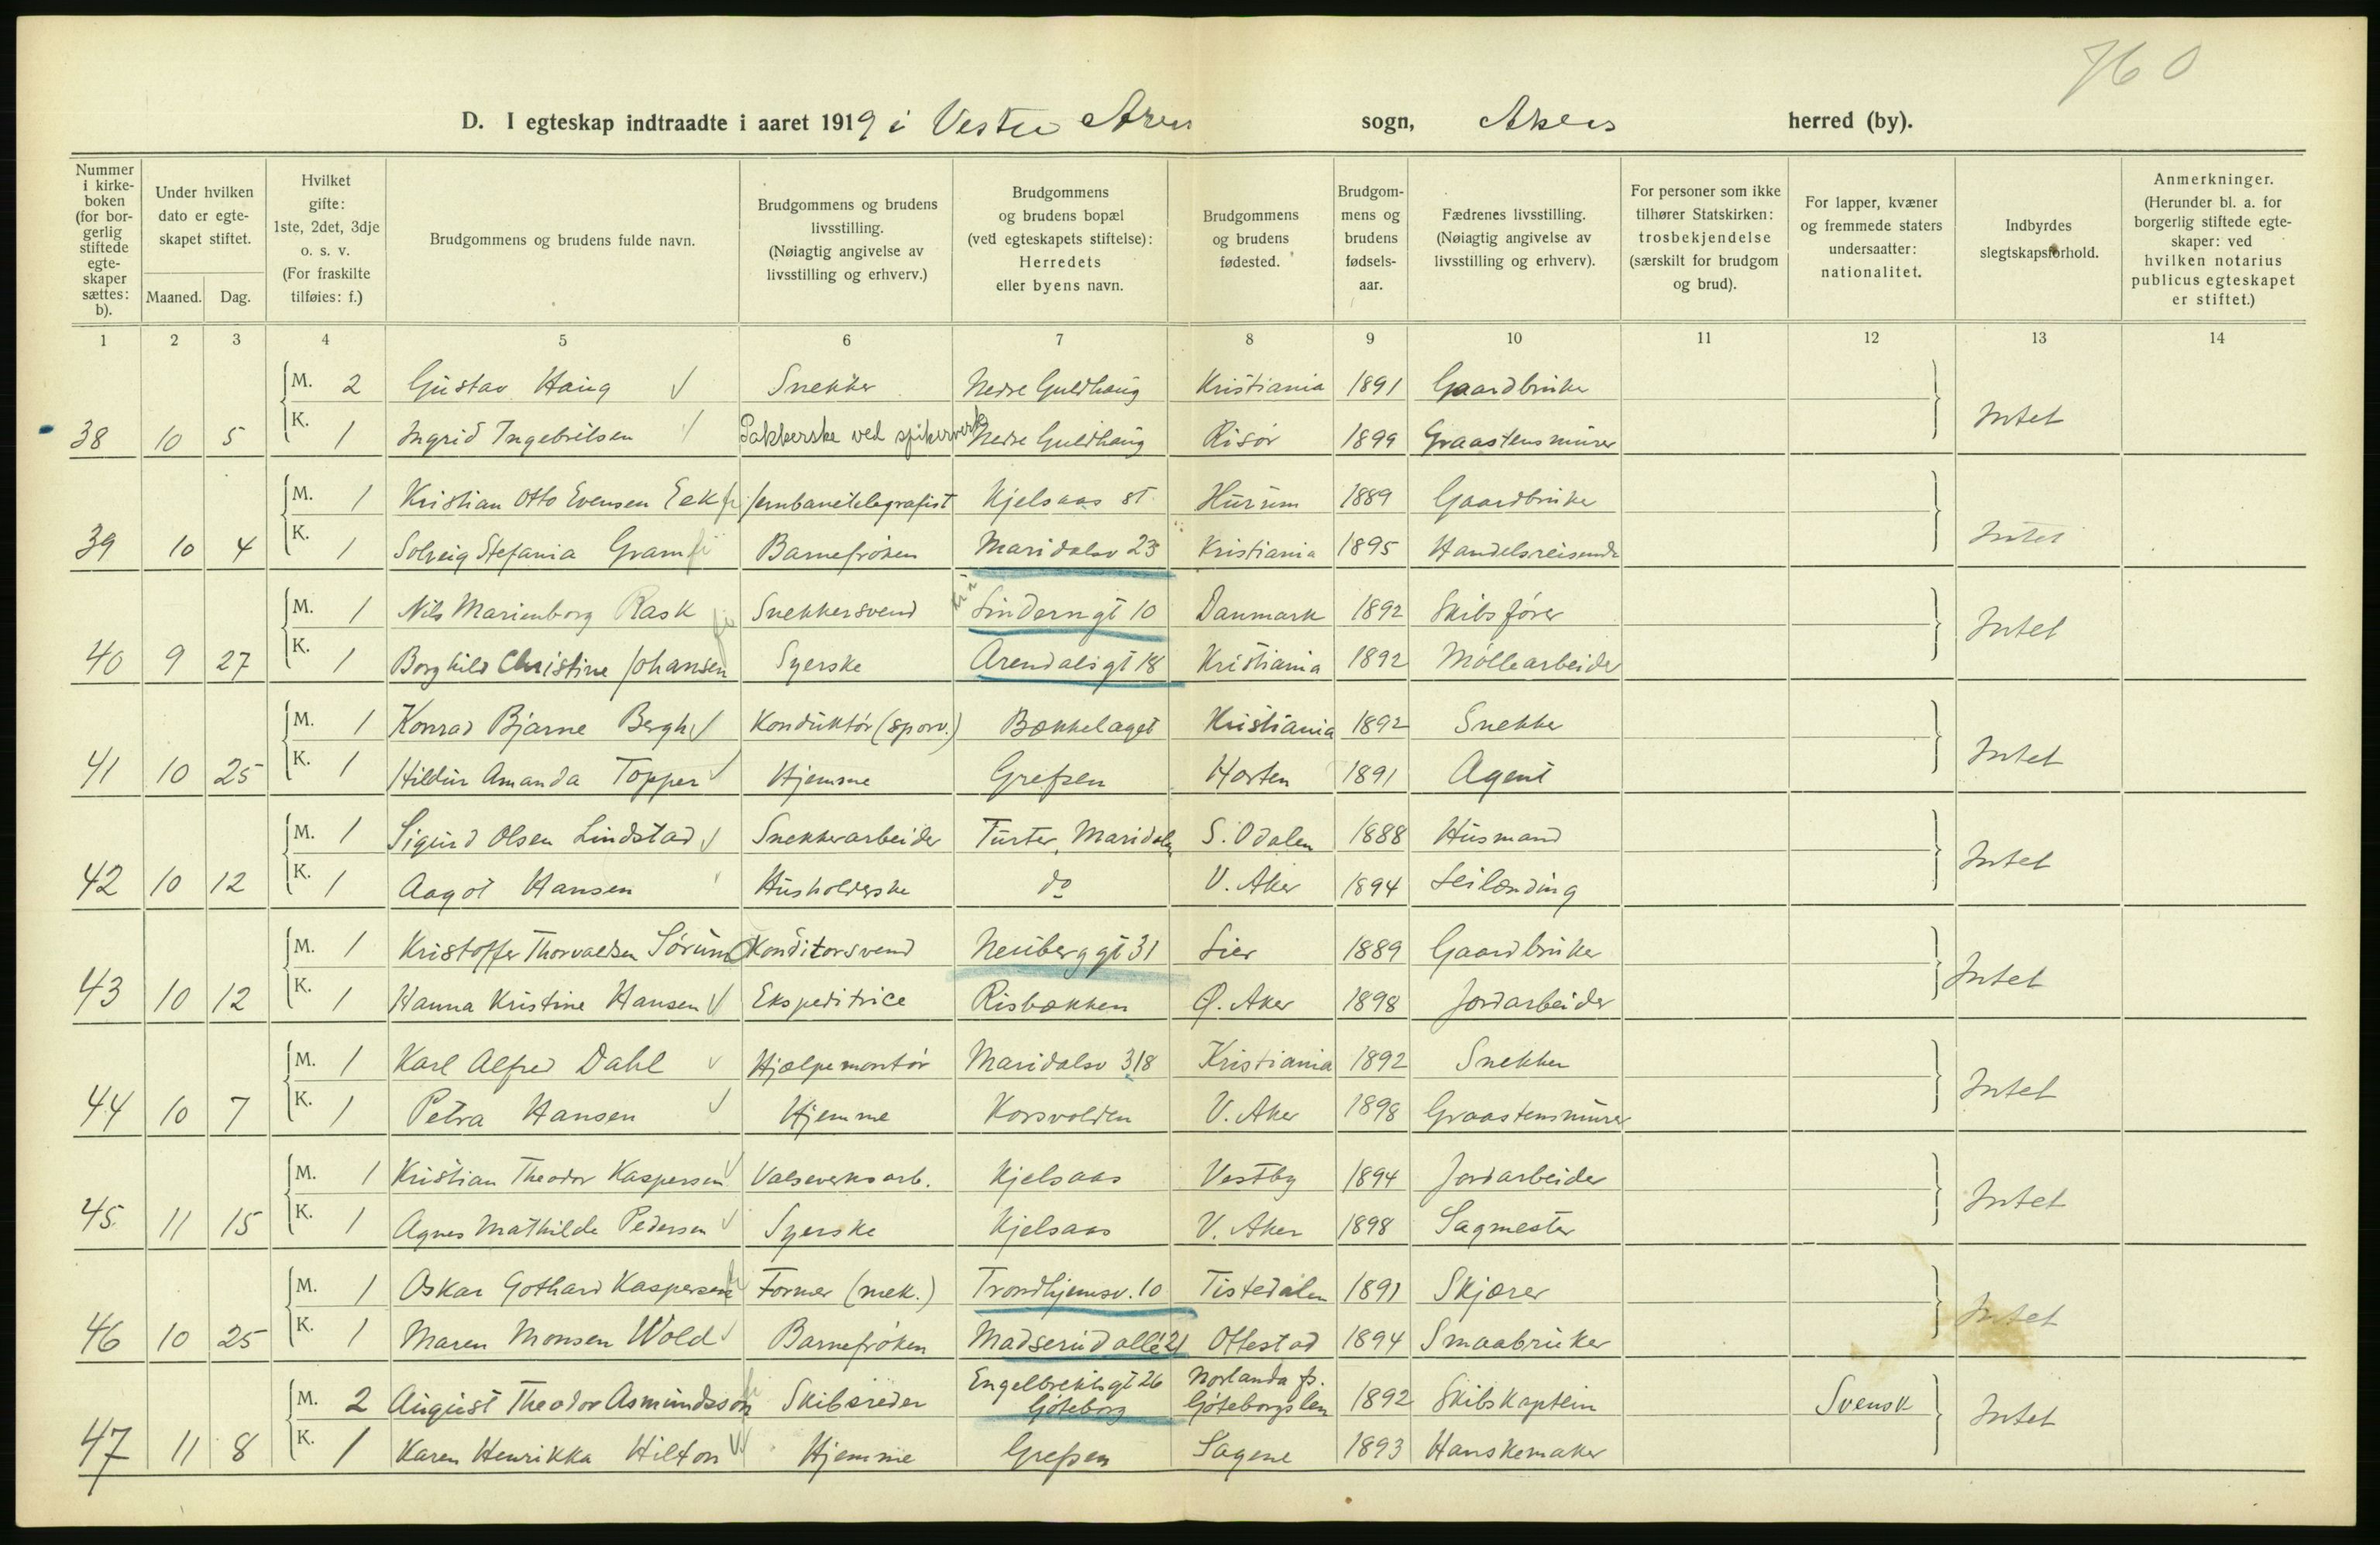 760
D. I egteskap indtraadte i aaret 1919 i Vestre Aker sogn, Akers herred (by).
Nummer i kirkeboken (for borgerlig stiftede egteskaper sættes: b).
Under hvilken dato er egteskapet stiftet. Maaned. Dag.
Hvilket gifte: 1ste, 2det, 3dje o. s. v. (For fraskilte tilføies: f.)
Brudgommens og brudens fulde navn.
Brudgommens og brudens livsstilling. (Nøiagtig angivelse av livsstilling og erhverv.)
Brudgommens og brudens bopæl (ved egteskapets stiftelse): Herredets eller byens navn.
Brudgommens og brudens fødested.
Brudgommens og brudens fødselsaar.
Fædrenes livsstilling. (Nøiagtig angivelse av livsstilling og erhverv).
For personer som ikke tilhører Statskirken: trosbekjendelse (særskilt for brudgom og brud).
For lapper, kvæner og fremmede staters undersaatter: nationalitet.
Indbyrdes slegtskapsforhold.
Anmerkninger. (Herunder bl. a. for borgerlig stiftede egteskaper: ved hvilken notarius publicus egteskapet er stiftet.)
1 2 3 4 5 6 7 8 9 10 11 12 13 14
M. 2 Gustav Haug Snekker Nedre Guldhaug Kristiania 1891 Gaardbruker
38 10 5 K. 1 Ingrid Ingebrilsen Pakkerske ved spikerverk Nedre Guldhaug Risør 1899 Graastensmurer Intet
M. 1 Kristian Otto Evensen Eek Jernbanetelegrafist Kjelsaas st. Hurum 1889 Gaardbruker
39 10 4 K. 1 Solveig Stefania Gram Barnefrøken Maridalsv 23 Kristiania 1895 Handelsreisende Intet
M. 1 Nils Marienborg Rask Snekkersvend Linderngt 10 Danmark 1892 Skibsfører
40 9 27 K. 1 Borghild Christine Johansen Syerske Arendalsgt 18 Kristiania 1892 Møllearbeider Intet
M. 1 Konrad Bjarne Bergh Konduktør (sporv.) Bækkelaget Kristiania 1892 Snekker
41 10 25 K. 1 Hildur Amanda Topper Hjemme Grefsen Horten 1891 Agent Intet
M. 1 Sigurd Olsen Lindstad Snekkerarbeider Turter, Maridalen S. Odalen 1888 Husmand
42 10 12 K. 1 Aagot Hansen Husholderske do V. Aker 1894 Leilænding Intet
M. 1 Kristoffer Thorvaldsen Sørum Konditorsvend Neuberggt 31 Lier 1889 Gaardbruker
43 10 12 K. 1 Hanna Kristine Hansen Ekspeditrice Risbækken Ø. Aker 1898 Jordarbeider Intet
M. 1 Karl Alfred Dahl Hjælpemontør Maridalsv 318 Kristiania 1892 Snekker
44 10 7 K. 1 Petra Hansen Hjemme Korsvolden V. Aker 1898 Graastensmurer Intet
M. 1 Kristian Theodor Kaspersen Valseverksarb. Kjelsaas Vestby 1894 Jordarbeider
45 11 15 K. 1 Agnes Mathilde Pedersen Syerske Kjelsaas V. Aker 1898 Sagmester Intet
M. 1 Oskar Gothard Kaspersen Former (mek.) Trondhjemsv. 10 Tistedalen 1891 Skjærer
46 10 25 K. 1 Maren Monsen Wold Barnefrøken Madserud allé 21 Ottestad 1894 Smaabruker Intet
M. 2 August Theodor Asmundsson Skibsreder Engelbrektsgt 26 Göteborg Norlanda fs. Göteborgs len 1892 Skibskaptein Svensk
47 11 8 K. 1 Karen Henrikka Hilton Hjemme Grefsen Sagene 1893 Hanskemaker Intet